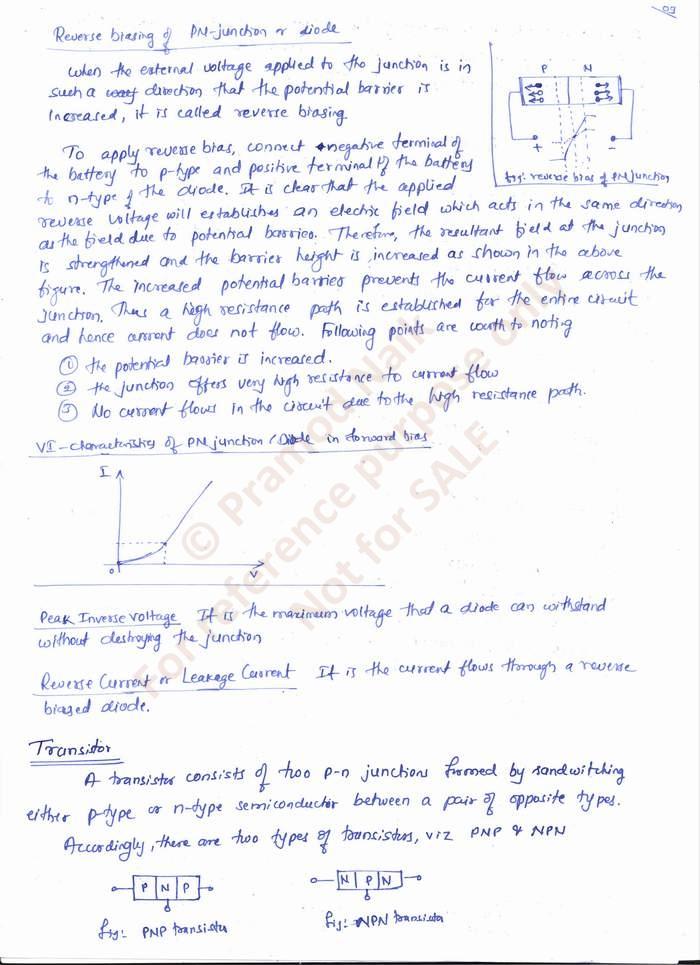 03
Reverse biasing of PN-junction or diode
When the external voltage applied to the junction is in
such a way direction that the potential barrier is
increased, it is called reverse biasing.
P N
+ -
fig: reverse bias of PN junction
To apply reverse bias, connect negative terminal of
the battery to p-type and positive terminal of the battery
to n-type of the diode. It is clear that the applied
reverse voltage will establishes an electric field which acts in the same direction
as the field due to potential barrier. Therefore, the resultant field at the junction
is strengthened and the barrier height is increased as shown in the above
figure. The increased potential barrier prevents the current flow across the
junction, Thus a high resistance path is established for the entire circuit
and hence current does not flow. Following points are worth to noting
① the potential barrier is increased.
② the junction offers very high resistance to current flow
③ No current flows in the circuit due to the high resistance path.
VI-characteristics of PN junction/Diode in forward bias
I
0 V
Peak Inverse Voltage It is the maximum voltage that a diode can withstand
without destroying the junction
Reverse Current or Leakage Current It is the current flows through a reverse
biased diode.
Transistor
A transistor consists of two p-n junctions formed by sandwitching
either p-type or n-type semiconductor between a pair of opposite types.
Accordingly, there are two types of transistors, viz PNP & NPN
P N P
N P N
fig: PNP transistor
fig: NPN transistor
© Pramod Naik
For reference purpose only
Not for SALE